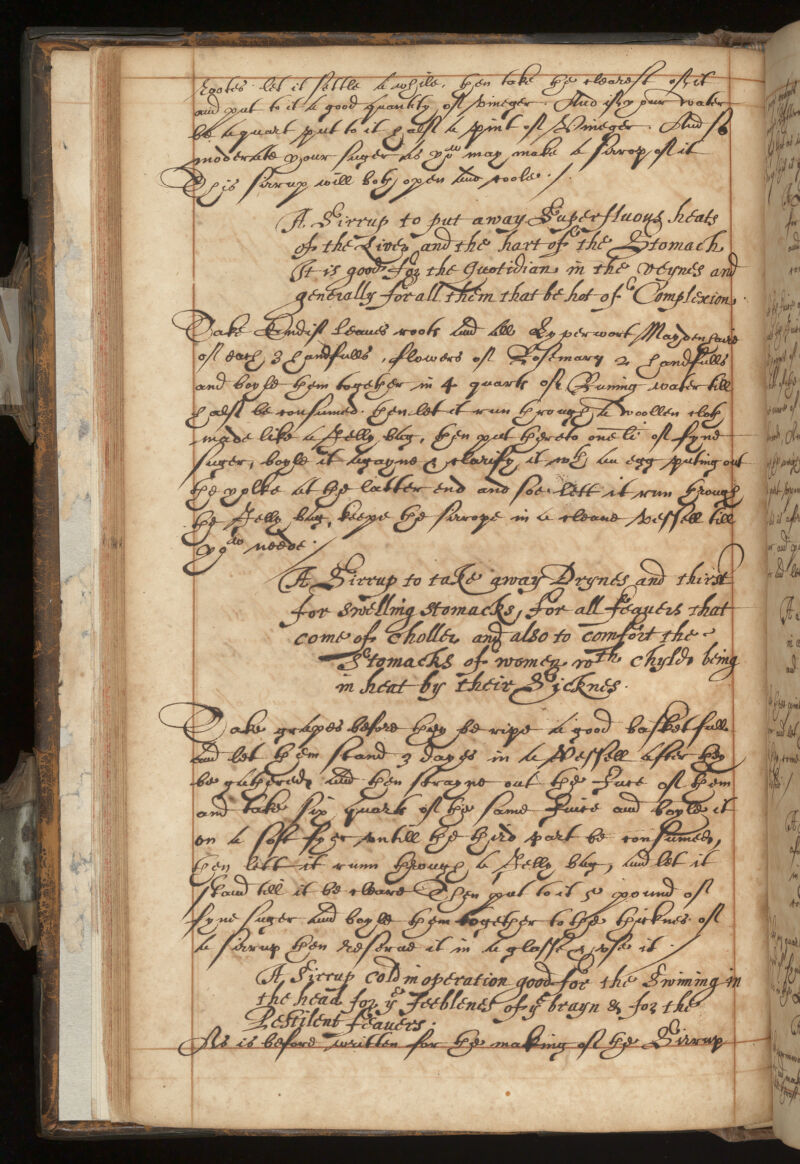 Rootes let it settle a while, then take the clearest of it
and put to it a good quantity of vineger. And if your water
be a quart put to it halfe a pint of Vineger. And so
moderate your suger as you may make a sirrop of it
This sirrup will both open and coole ./
A Sirrup to put away Superfluous heats
of the Liver and the hart of the Stomach
It is good for the Quotidian in the veynes and
generally for all them that be hot of Complexion.
Take Endif leaues roots and all Lyverwort Maydenhaire
of each 3 handfulls, flowers of Rosemary 2 handfulls
and boyle them together in 4 quarts of Runing water till
halfe be consumed. then let it run through a woollen cloth
made like a Jelly bag, then put thereto one li of fyne
suger, boyle it agayne & clarify it wth an egg puting out
the yolke at the latter end and soe lett it run through
the Jelly bag, keepe the sirrope in a cleane vessell till
you neede ./
A Sirrup to take away Drynes and thirst
for swelling stomacks, for all feauers that
come of choller and also to comfort the
Stomacks of women wth chylde being
in heat by their Sicknes.
Take grapes before they be ripe a good basketfull
and let them stand 3 dayes in a Vessell after they
be gathered, and then strayne out the Juce of them
and take six quarts of the same Juice and boyle it
on a soft fyer untill the third part be consumed,
then lett it runn through a Jelly bag, and let it
stand till it be cleare Then put to it 5 pound of
fyne suger and boyle them together to the thicknes of
a sirrup then reserue it in a glasse & use it ./
A Sirrup cold in operation good for the Swiming in
the head for ye feeblenes of ye brayn & for the
Pestilent feauers.
As is before written for the making of the Sirrup